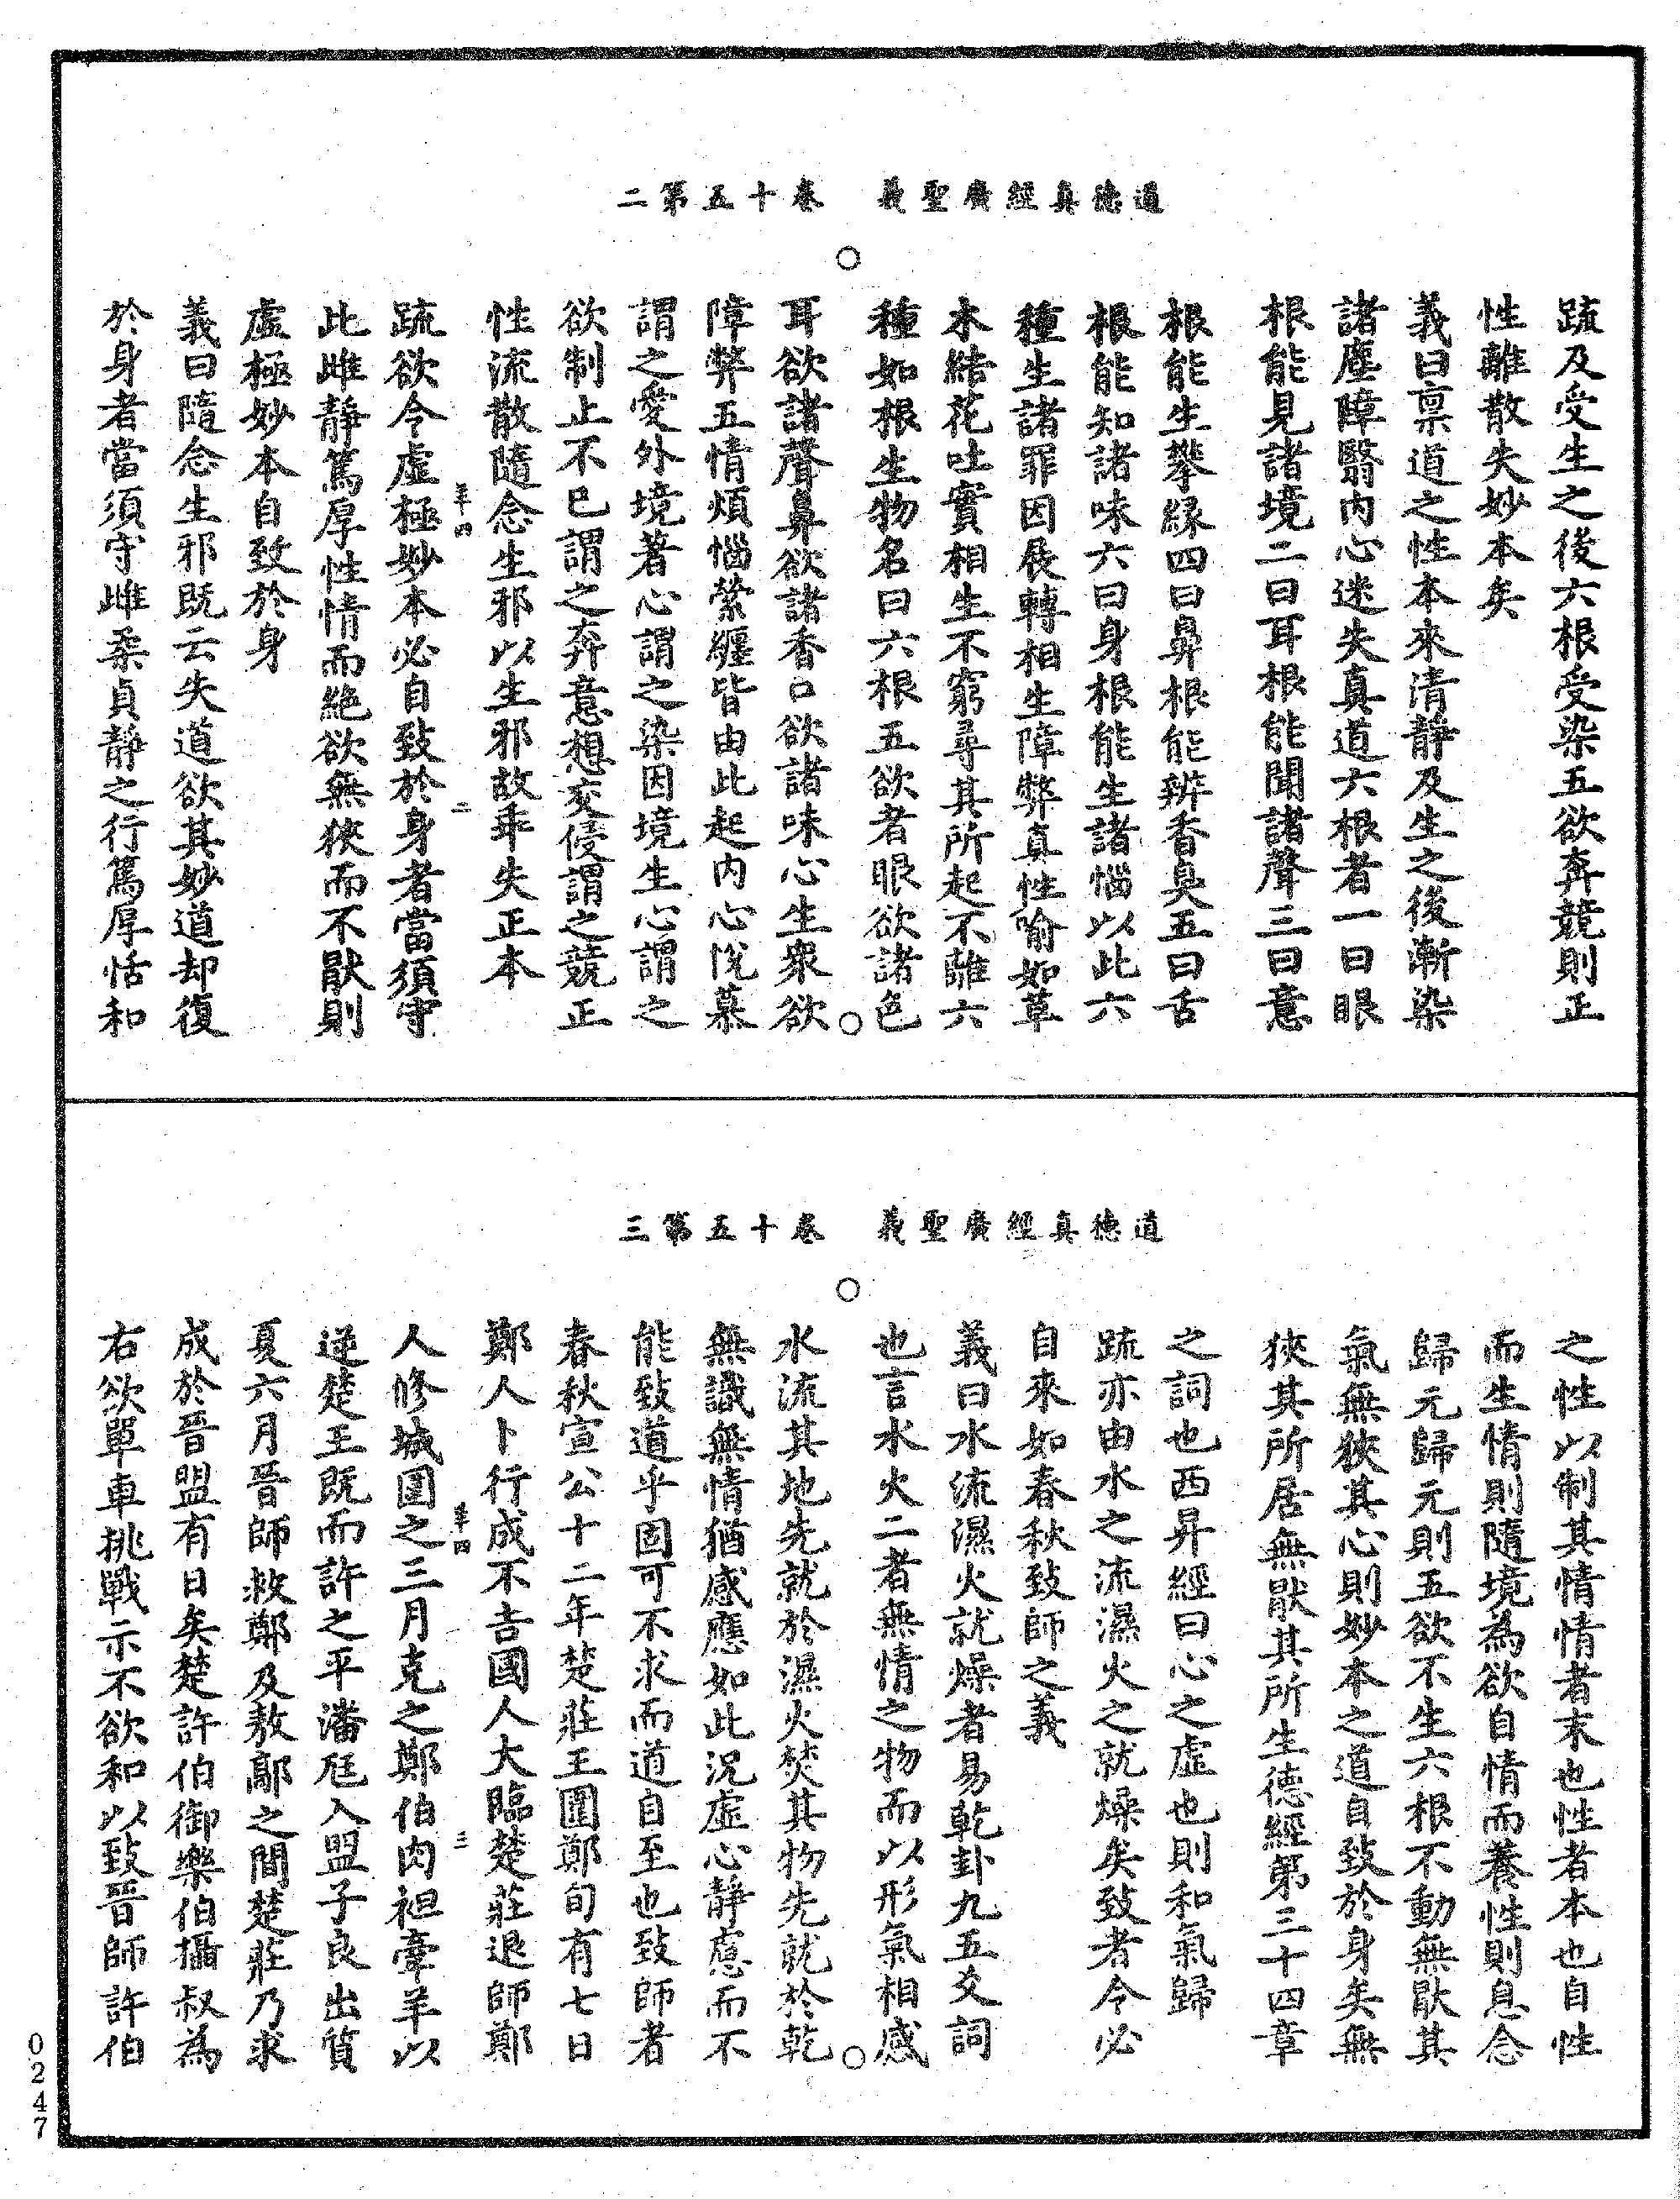 道德真經廣聖義　卷十五第二
疏及受生之後六根受染五欲奔競則正
性離散失妙本矣
義曰稟道之性本來清靜及生之後漸染
諸塵障翳內心迷失真道六根者一曰眼
根能見諸境二曰耳根能聞諸聲三曰意
根能生攀緣四曰鼻根能辨香臭五曰舌
根能知諸味六曰身根能生諸惱以此六
種生諸罪因展轉相生障弊真性喻如草
木結花吐實相生不窮尋其所起不離六
種如根生物名曰六根五欲者眼欲諸色
耳欲諸聲鼻欲諸香口欲諸味心生衆欲
障弊五情煩惱縈纏皆由此起內心悅慕
謂之愛外境著心謂之染因境生心謂之
欲制止不已謂之奔意想交侵謂之競正
性流散隨念生邪以生邪故乖失正本
疏欲令虛極妙本必自致於身者當須守
此雌靜篤厚性情而絕欲無狹而不猒則
虛極妙本自致於身
義曰隨念生邪既云失道欲其妙道却復
於身者當須守雌柔貞靜之行篤厚恬和
道德真經廣聖義　卷十五第三
之性以制其情情者末也性者本也自性
而生情則隨境為欲自情而養性則息念
歸元歸元則五欲不生六根不動無猒其
氣無狹其心則妙本之道自致於身矣無
狹其所居無猒其所生德經第三十四章
之詞也西昇經曰心之虛也則和氣歸
疏亦由水之流濕火之就燥矣致者令必
自來如春秋致師之義
義曰水流濕火就燥者易乾卦九五爻詞
也言水火二者無情之物而以形氣相感
水流其地先就於濕火焚其物先就於乾
無識無情猶感應如此況虛心靜慮而不
能致道乎固可不求而道自至也致師者
春秋宣公十二年楚莊王圍鄭旬有七日
鄭人卜行成不吉國人大臨楚莊退師鄭
人修城圍之三月克之鄭伯肉袒牽羊以
逆楚王既而許之平潘尫入盟子良出質
夏六月晉師救鄭及敖鄗之間楚莊乃求
成於晉盟有日矣楚許伯御樂伯攝叔為
右欲單車挑戰示不欲和以致晉師許伯
0247